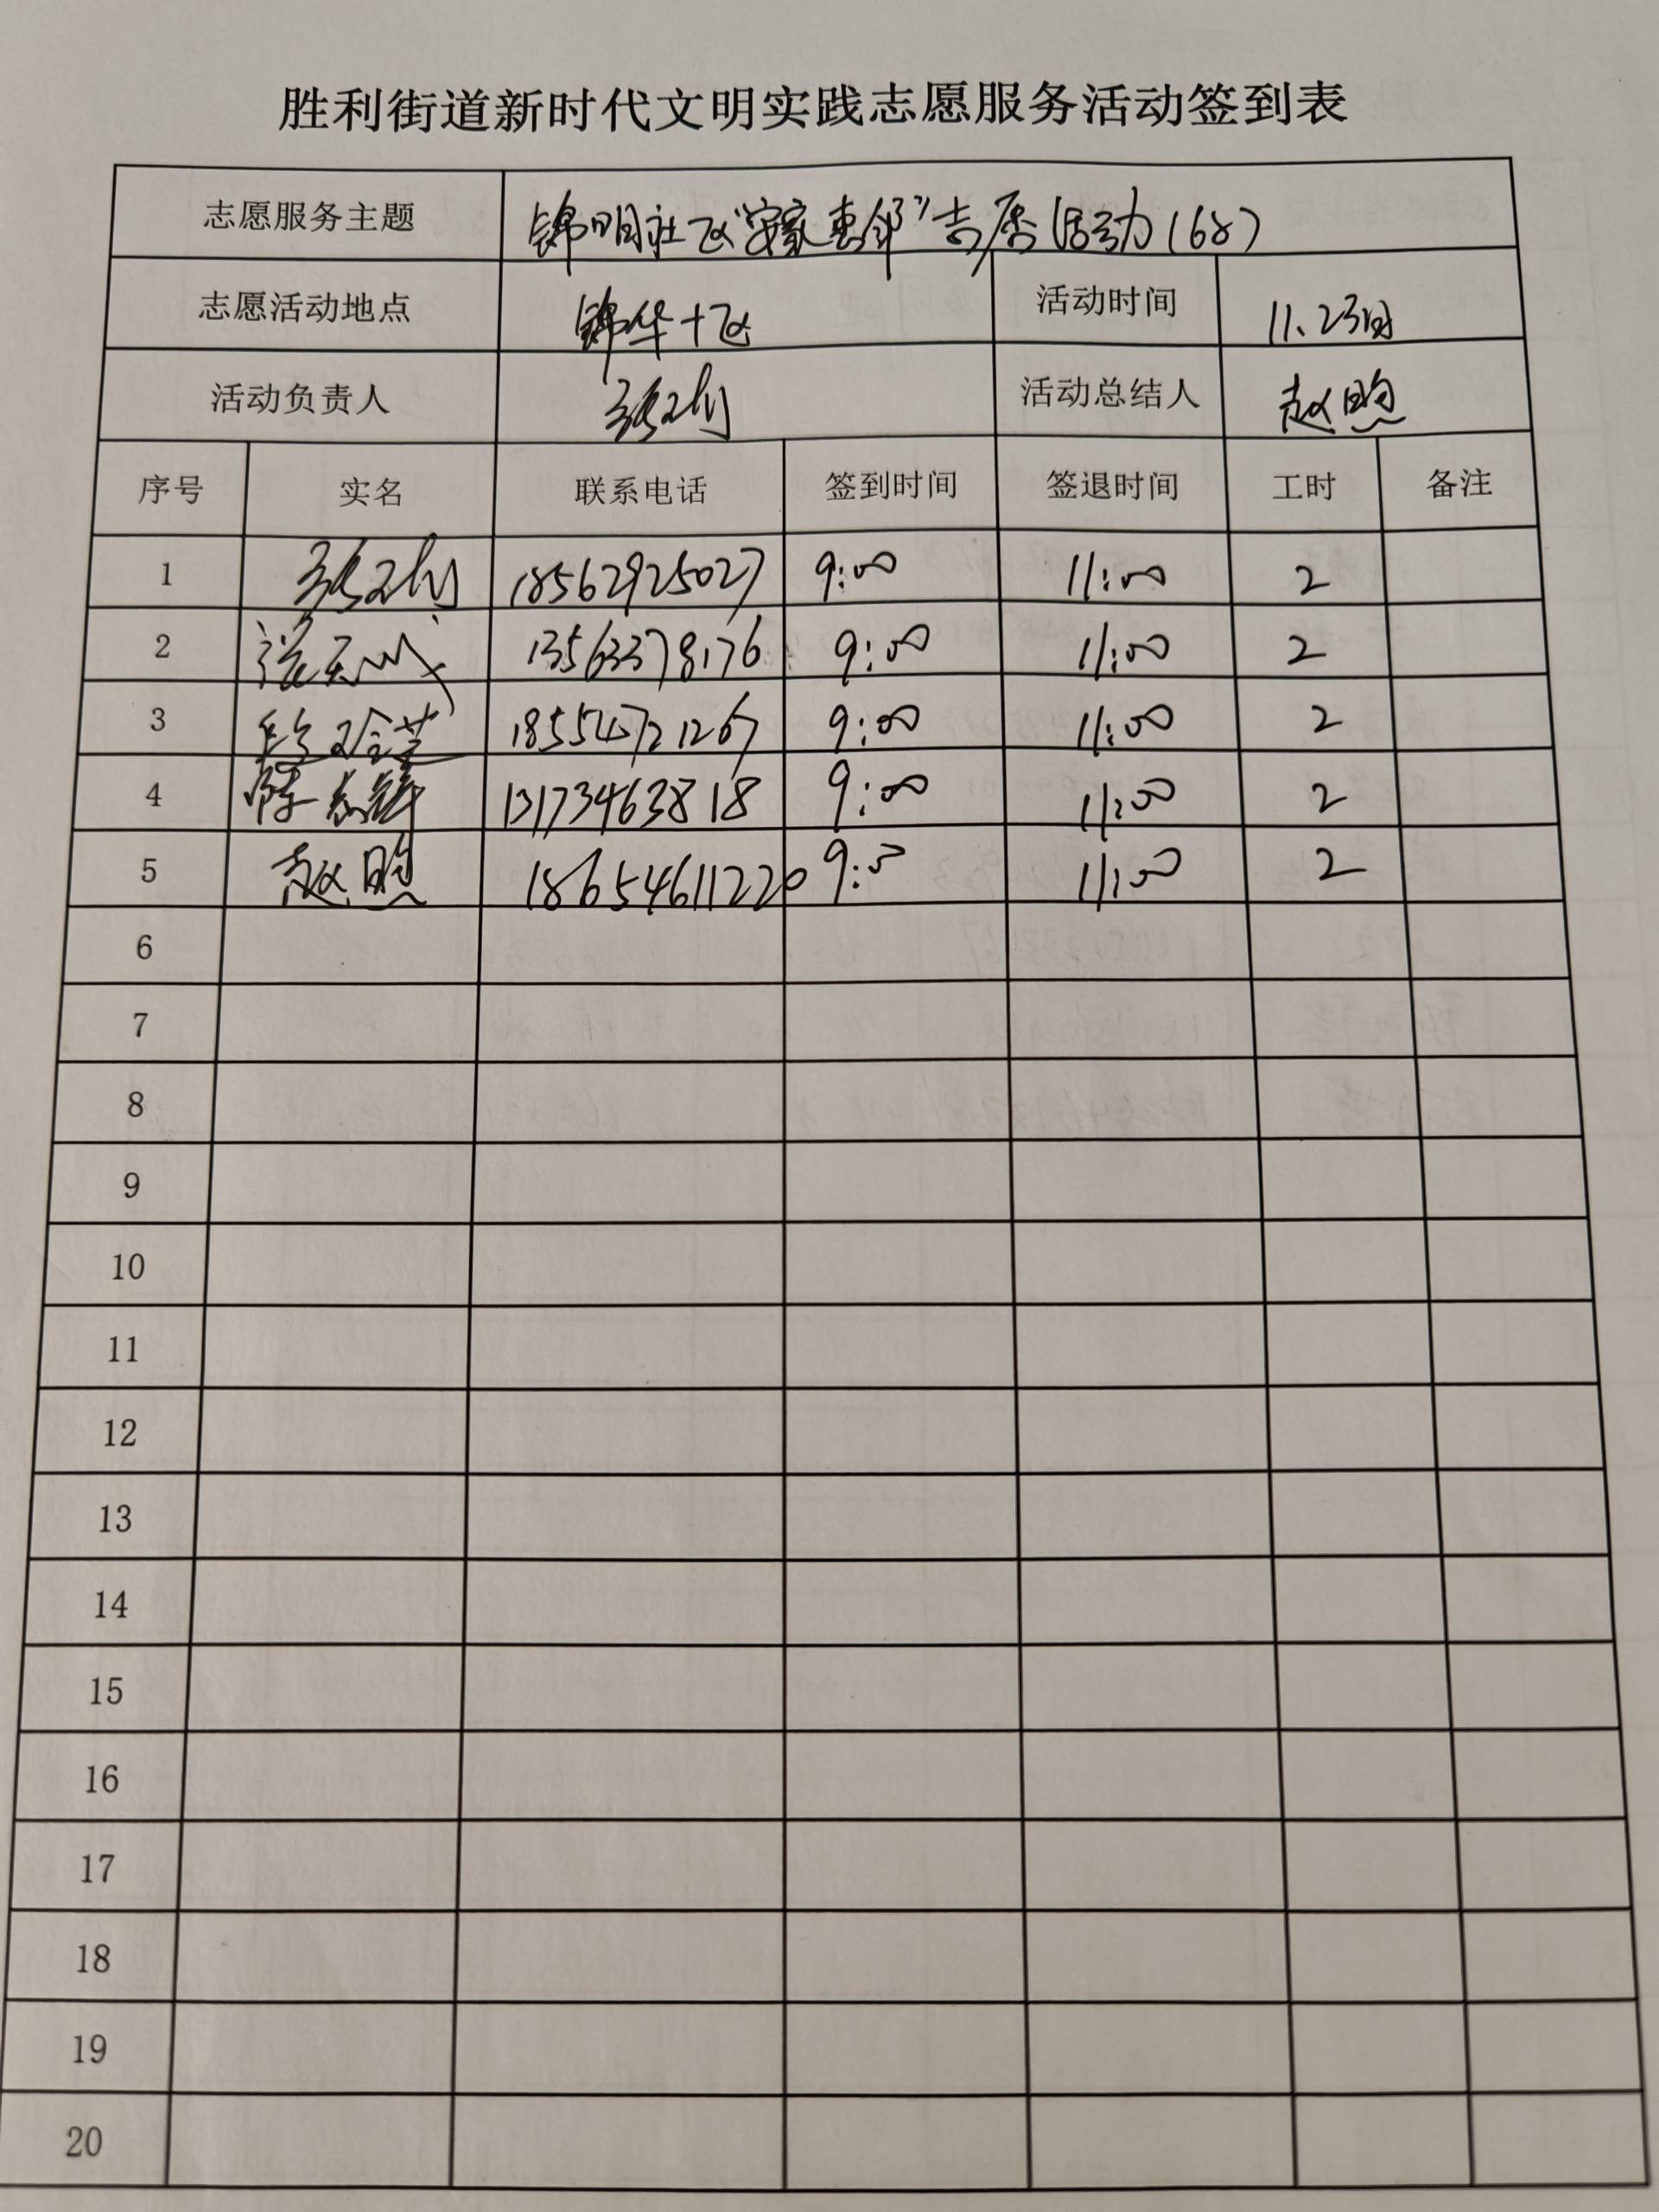 胜利街道新时代文明实践志愿服务活动签到表
志愿服务主题 锦明社区“安家惠邻”志愿活动(68)
志愿活动地点 锦华十区 活动时间 11.23日
活动负责人 活动总结人 赵煦
序号 实名 联系电话 签到时间 签退时间 工时 备注
1 18562925027 9:00 11:00 2
2 13563378176 9:00 11:00 2
3 18554721267 9:00 11:00 2
4 13173463818 9:00 11:00 2
5 赵煦 18654611220 9:0 11:00 2
6
7
8
9
10
11
12
13
14
15
16
17
18
19
20